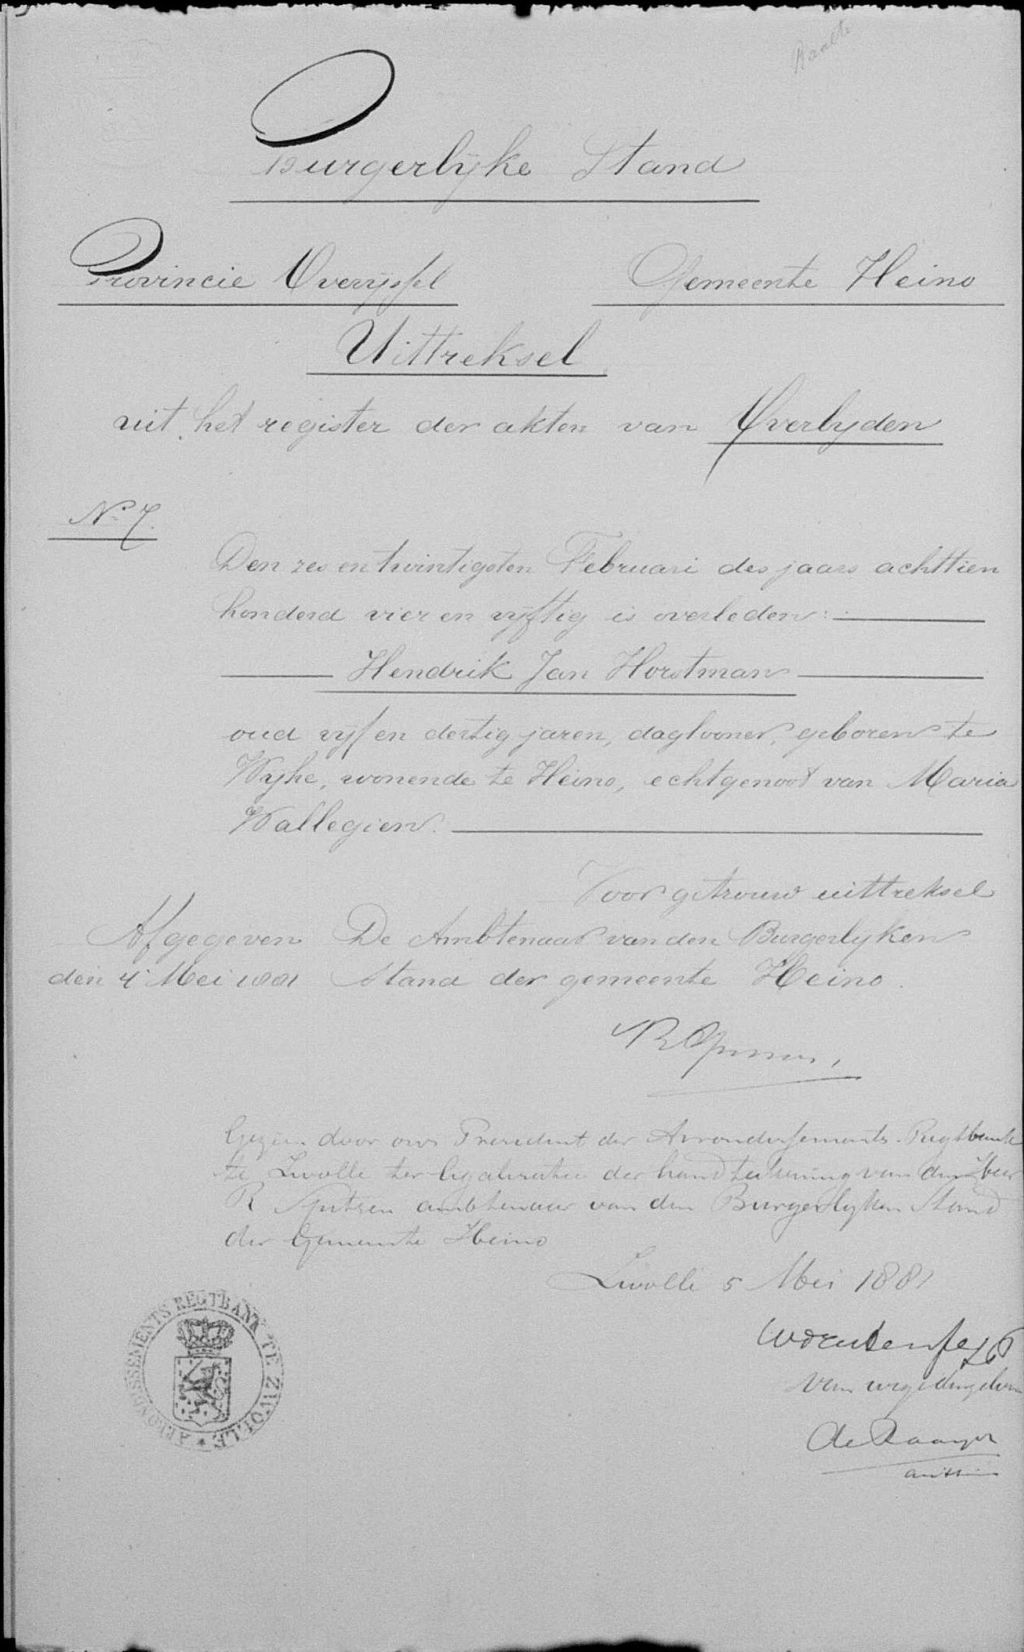 Raalte
Burgerlijke Stand
Provincie Overijssel Gemeente Heino
Uittreksel
uit het register der akten van Overlijden
No 7.
Den zes en twintigsten Februari des jaars achttien
honderd vier en vijftig is overleden:
Hendrik Jan Horstman
oud vijf en dertig jaren, dagloner, geboren te
Wijhe, wonende te Heino, echtgenoot van Maria
Wallegien.
Voor getrouw uittreksel
Afgegeven De Ambtenaar van den Burgerlijken
den 4 Mei 1881 Stand der gemeente Heino.
Gezien door ons President der Arrondissements-Regtbank
te Zwolle ter legalisatie der handteekening van den Heer
R ambtenaar van den Burgerlijken Stand
der Gemeente Heino
Zwolle 5 Mei 1881
ARRONDISSEMENTS REGTBANK TE ZWOLLE